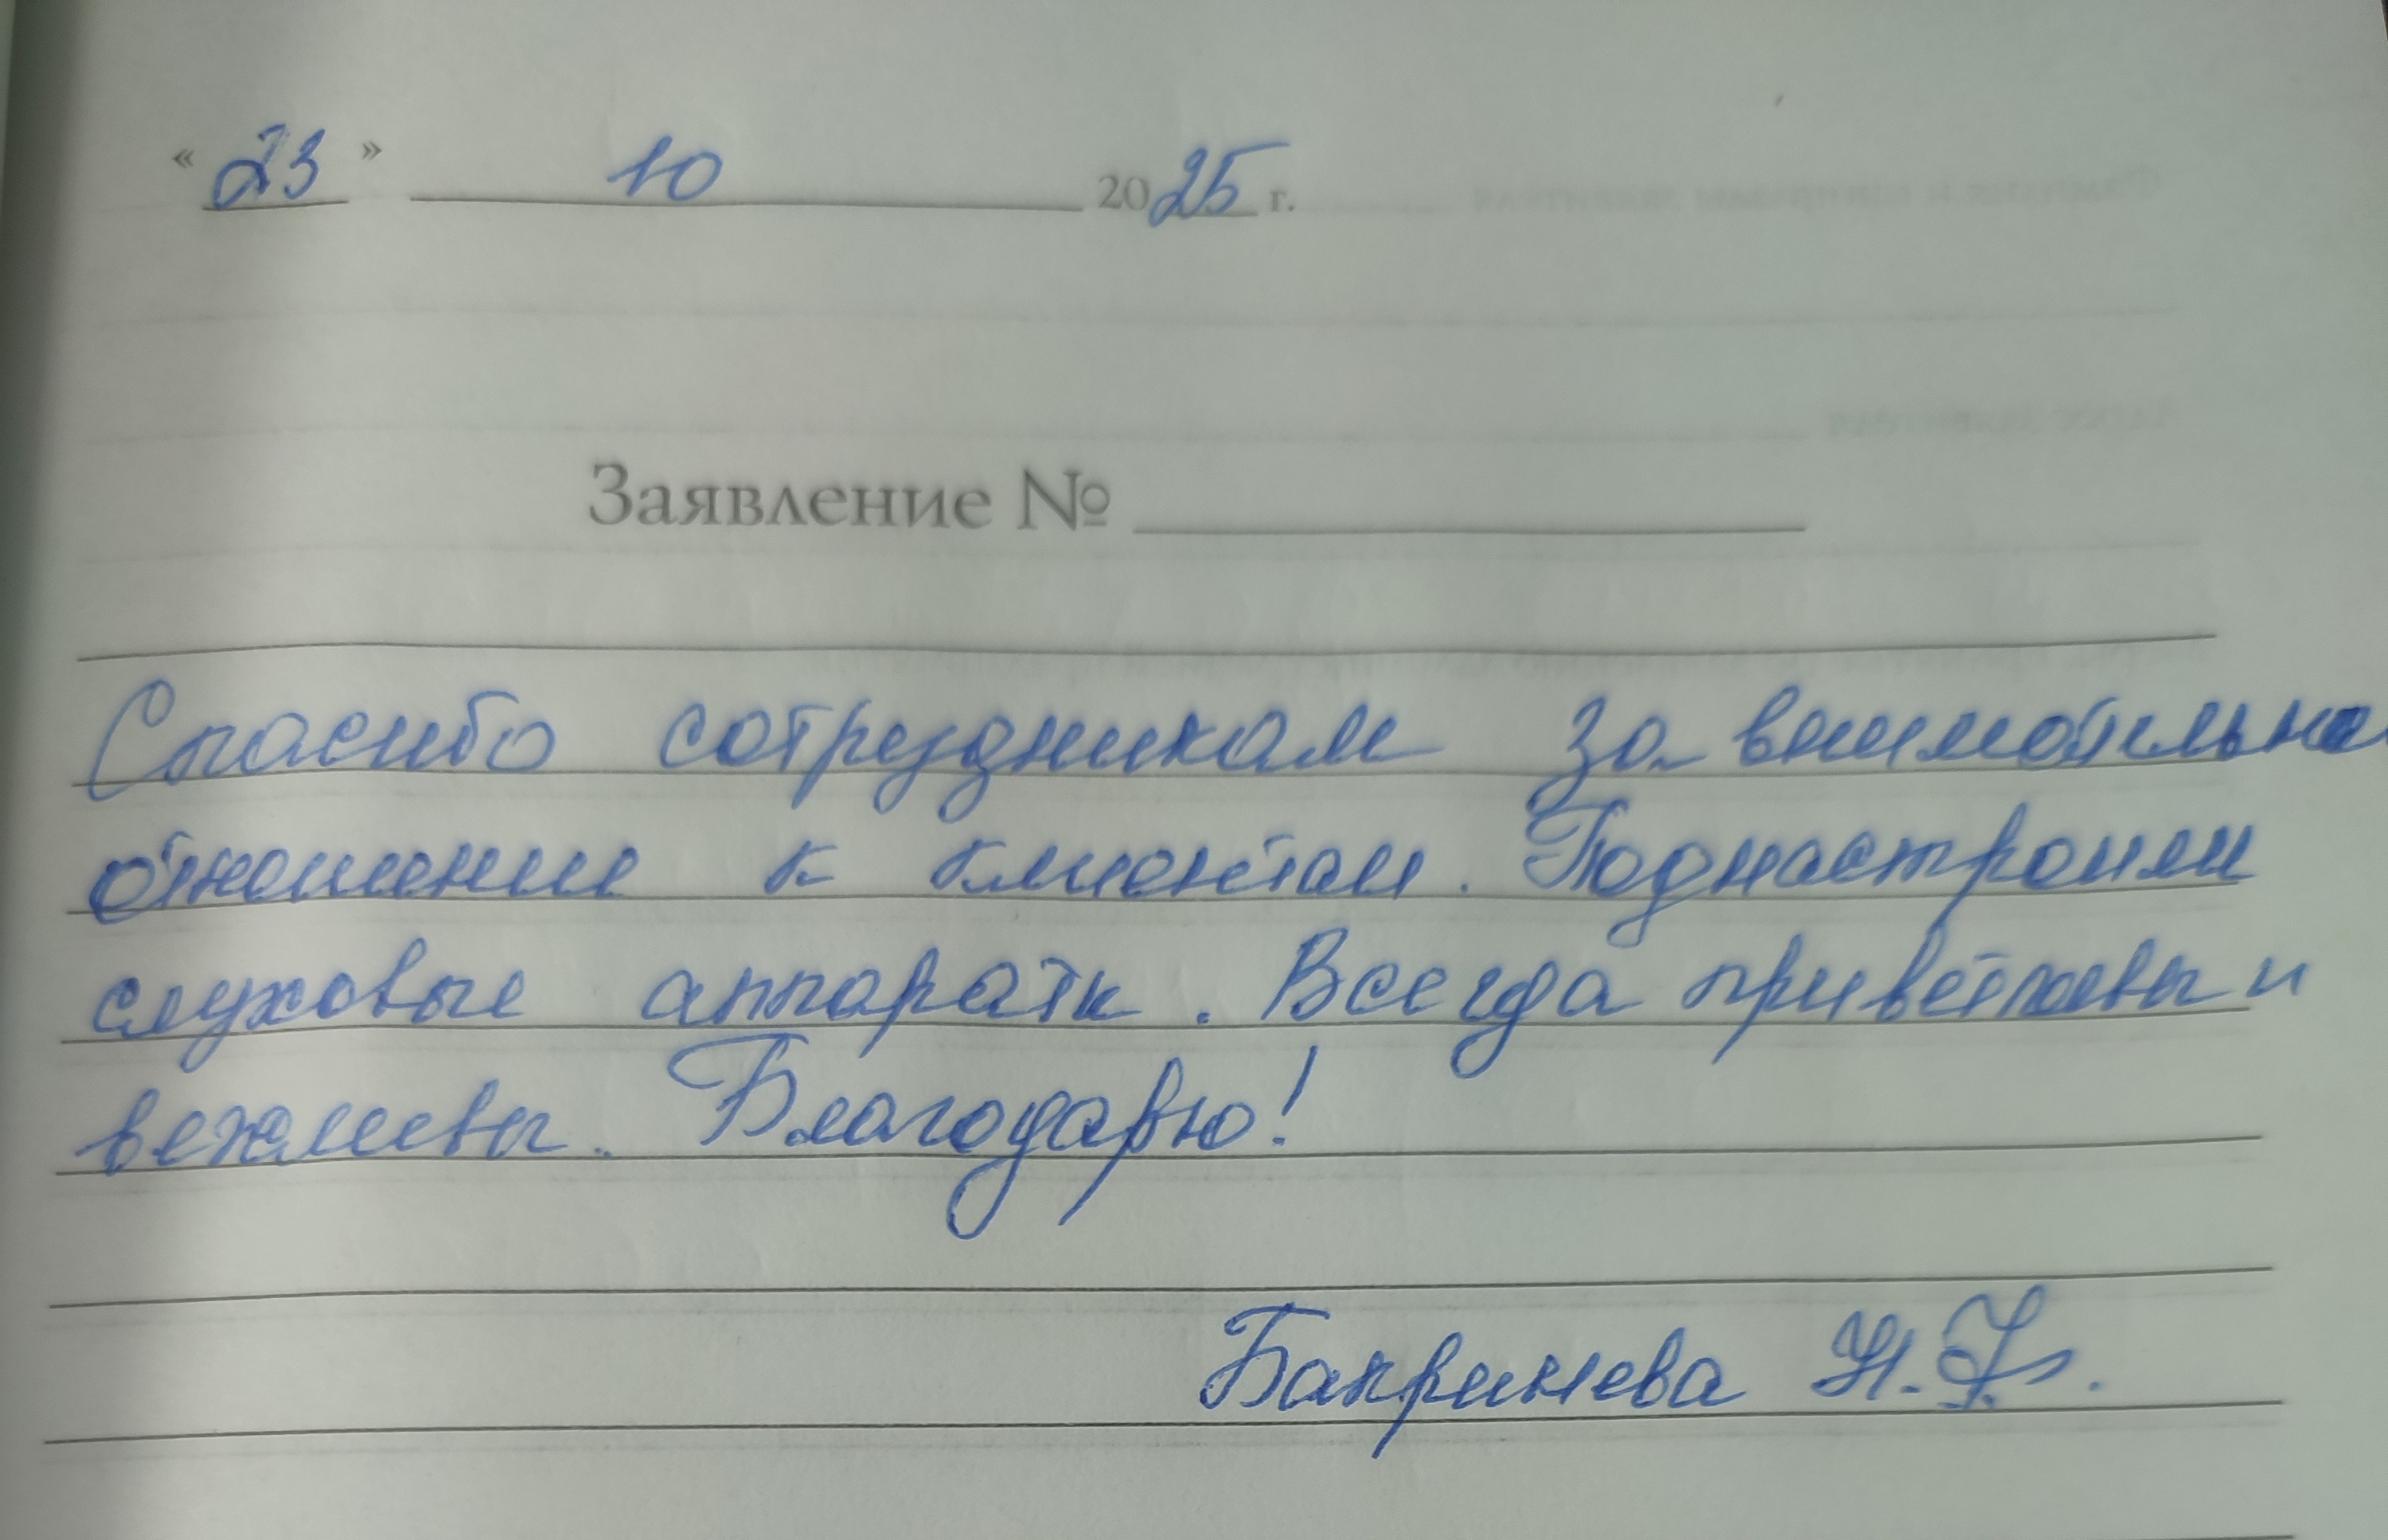 « 23 » 10 2025 г.
Заявление №
Спасибо сотрудникам за внимательно
отношение к клиентам. Поднастроили
слуховые аппараты. Всегда приветливы и
вежливы. Благодарю!
Бакринева Н.